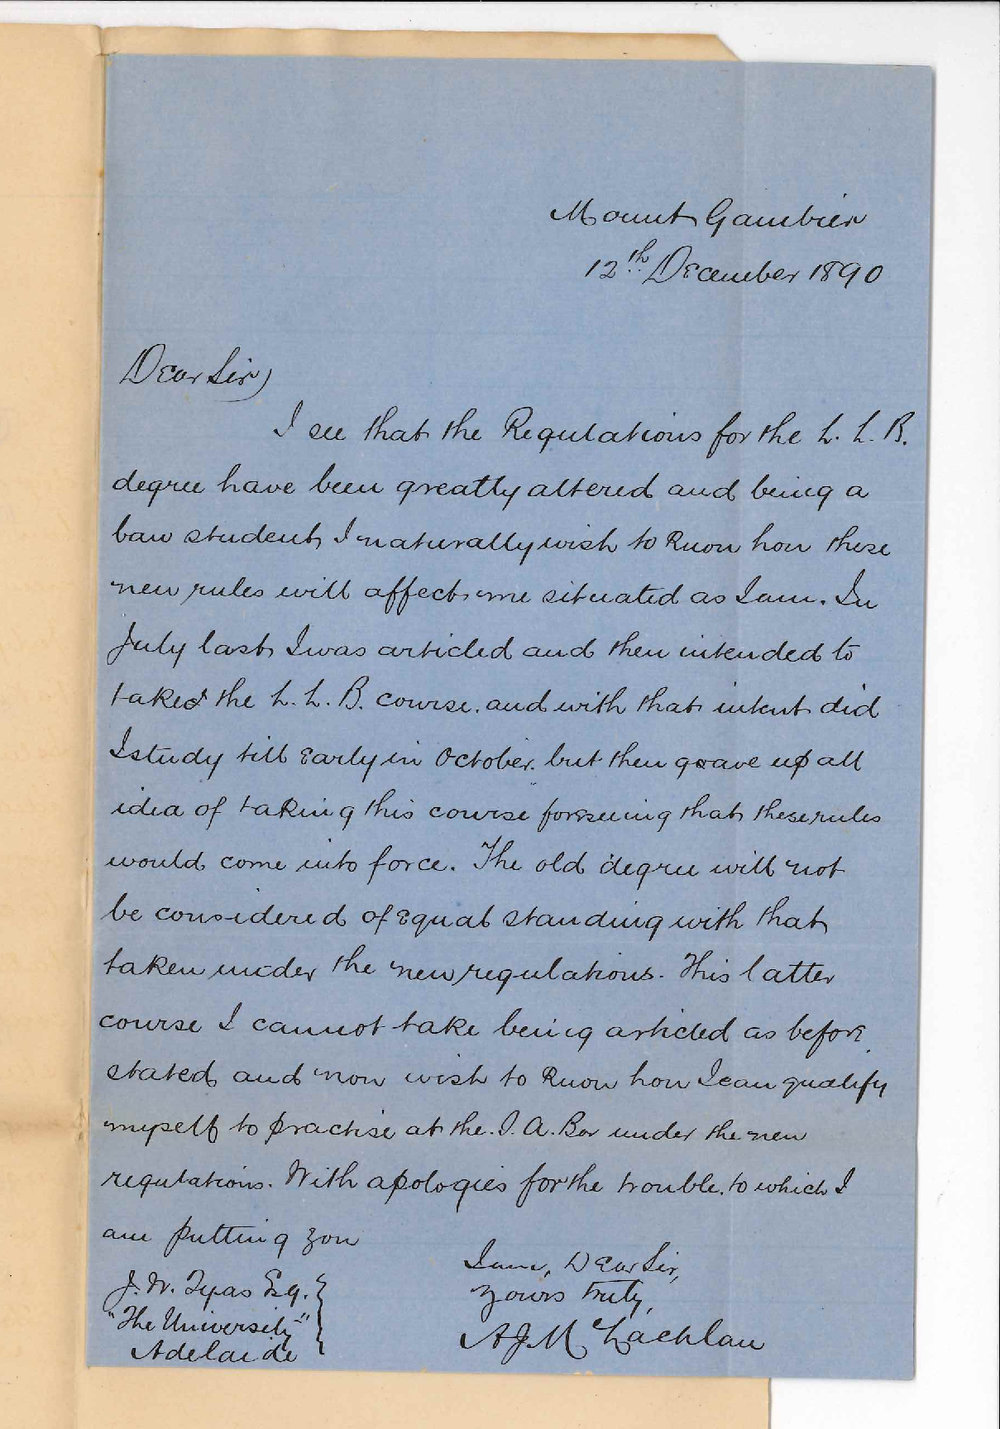 Mount Gambier
12th December 1890
Dear Sir,
I see that the Regulations for the L. L. B.
degree have been greatly altered and being a
law student, I naturally wish to know how these
new rules will affect me situated as I am. In
July last, I was articled and then intended to
take the L. L. B. course. and with that intent did
I study till early in October. but then gave up all
idea of taking this course forseeing that these rules
would come into force. The old degree will not
be considered of equal standing with that
taken under the new regulations. This latter
course I cannot take being articled as before
stated and now wish to know how I can qualify
myself to practise at the S. A. Bar under the new
regulations. With apologies for the trouble. to which I
am putting you
I am, Dear Sir,
Yours truly,
A J McLachlan
J. W. Tyas Esq.
"The University"
Adelaide